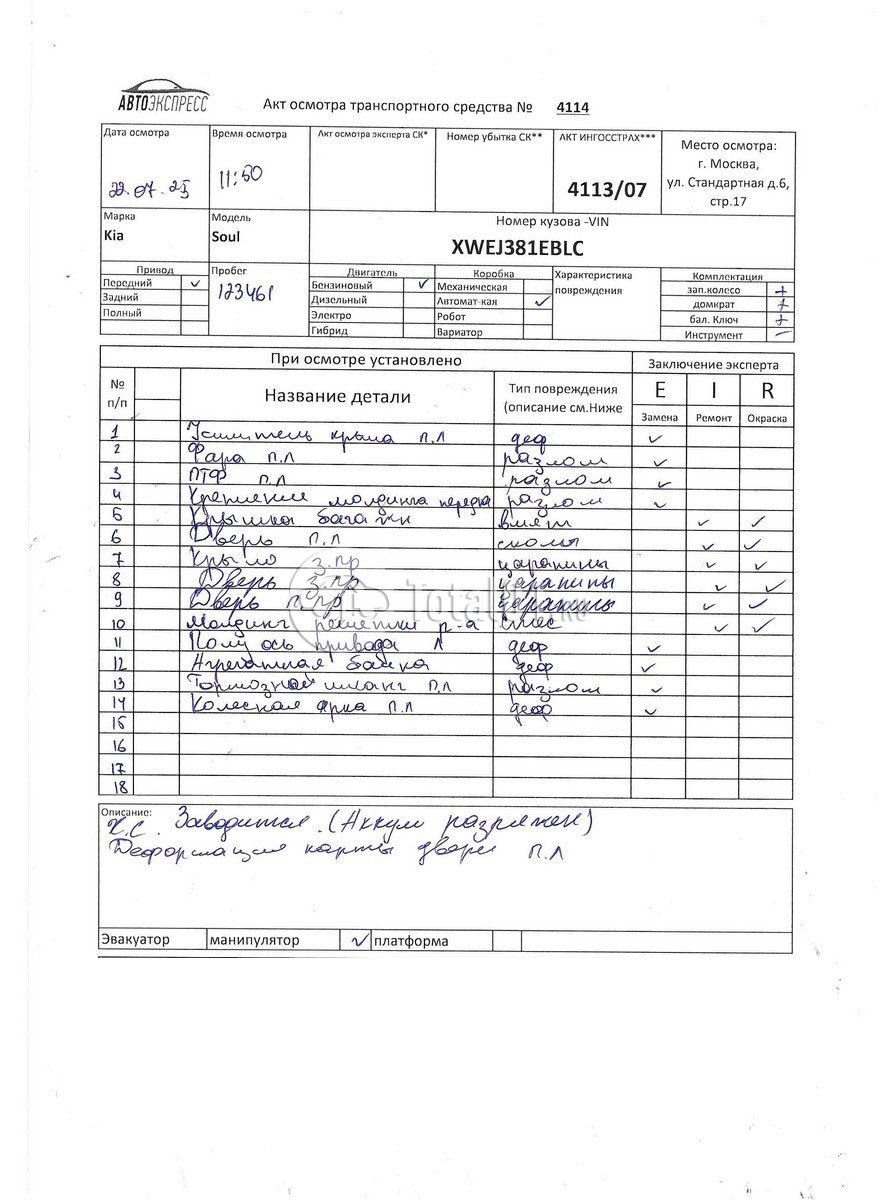 АВТОЭКСПРЕСС
Акт осмотра транспортного средства № 4114
Дата осмотра
Время осмотра
Акт осмотра эксперта СК*
Номер убытка СК**
АКТ ИНГОССТРАХ***
Место осмотра:
г. Москва,
ул. Стандартная д.6,
стр.17
22.07.25
11:50
4113/07
Марка
Модель
Номер кузова -VIN
Kia
Soul
XWEJ381EBLC
Привод
Пробег
Двигатель
Коробка
Характеристика
повреждения
Комплектация
Передний ✓
Бензиновый ✓
Механическая
зап.колесо +
Задний
123461
Дизельный
Автомат-кая ✓
домкрат +
Полный
Электро
Робот
бал. Ключ +
Гибрид
Вариатор
Инструмент –
При осмотре установлено
Заключение эксперта
№
п/п
Название детали
Тип повреждения
(описание см.Ниже
E I R
Замена Ремонт Окраска
1 Усилитель крыла п.л деф ✓
2 Фара п.л разлом ✓
3 ПТФ п.л разлом ✓
4 Крепление молдинга передка разлом ✓
5 Крышка багажн вмят ✓ ✓
6 Дверь п.л сколы ✓ ✓
7 Крыло з.пр царапины ✓ ✓
8 Дверь з.пр царапины ✓ ✓
9 Дверь п.пр царапины ✓ ✓
10 Молдинг решетки р-а ✓ ✓
11 Полу ось привода л деф ✓
12 Агрегатная балка деф ✓
13 Тормозной шланг п.л разлом ✓
14 Колесная арка п.л деф ✓
15
16
17
18
Описание:
Х.С. Заводится. (Аккум разряжен)
Деформация карты двери п.л
Эвакуатор манипулятор ✓ платформа